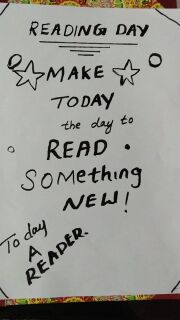 READING DAY
MAKE
TODAY
the day to
READ.
SOMething
NEW!
Today
A
READER.